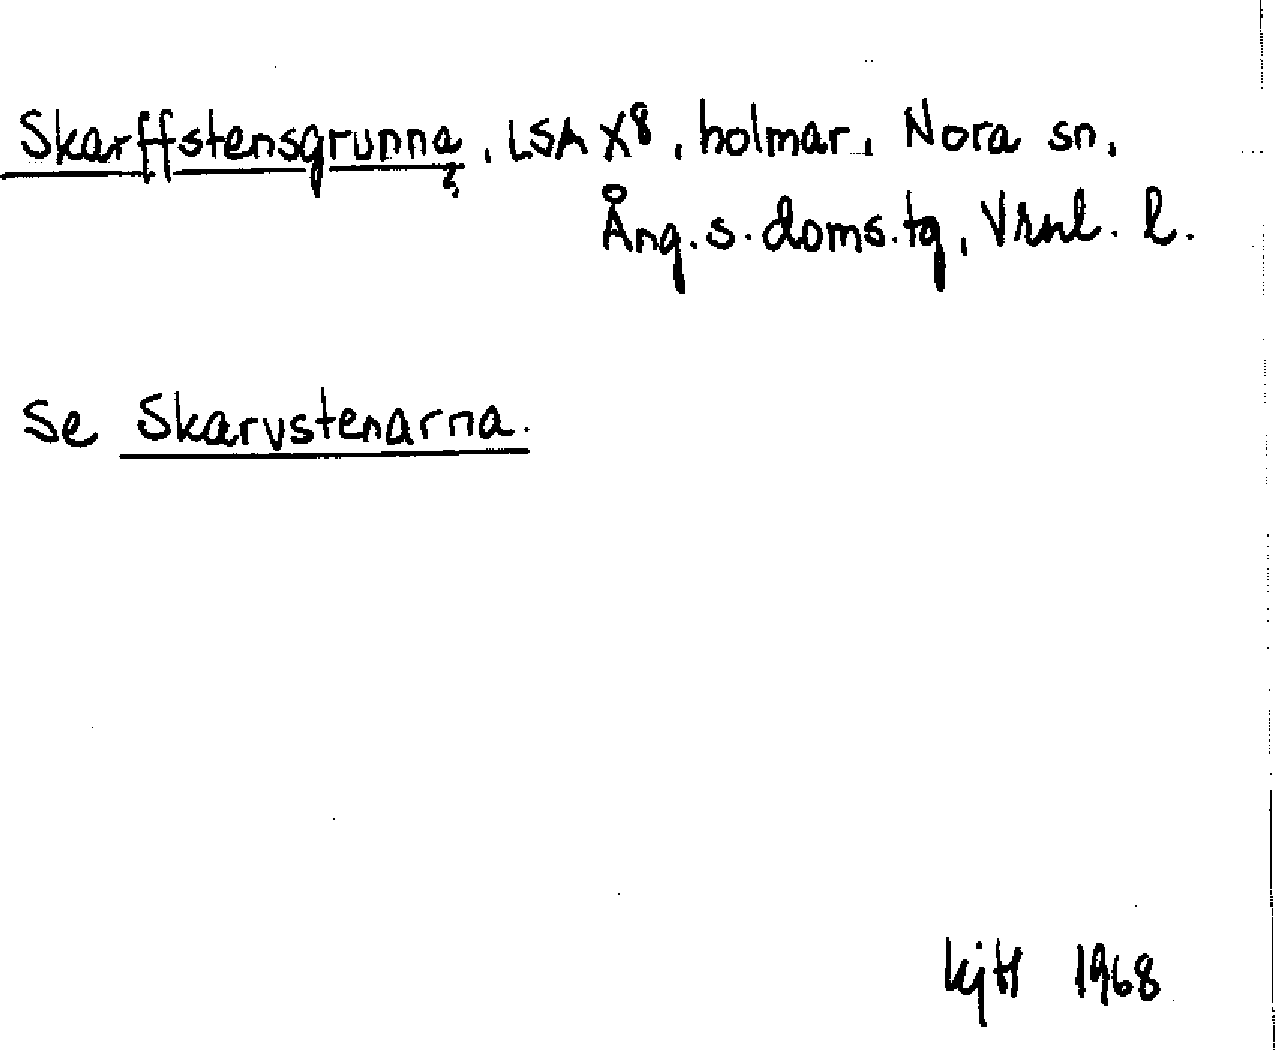 Skarffstensgrunna, LSA X8, holmar, Nora sn,
?
Ång. s. doms. tg, Vrnl. l.
Se Skarvstenarna.
1968